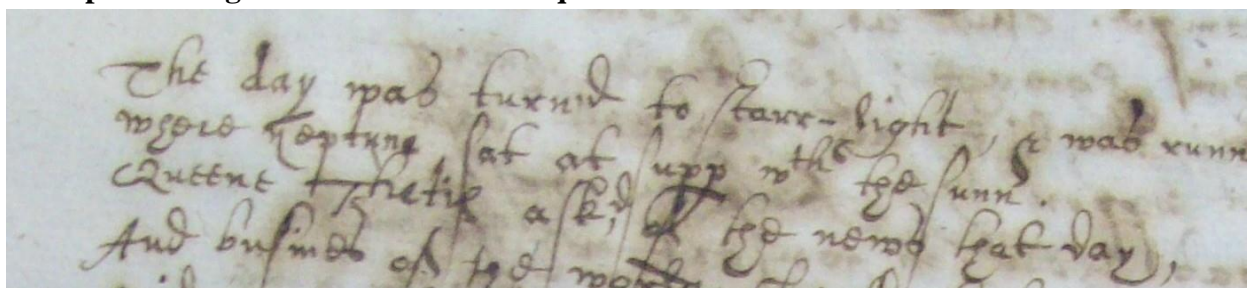 The day was turnd to starr-light, & was runn
where Neptune sat at supp wth the sunn.
Queene Thetis askd, of the news that day,
And busines of the